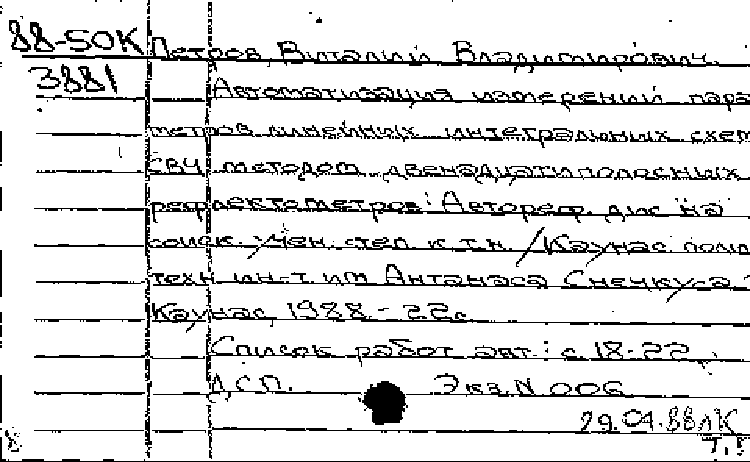 88-50К Петров, Виталий Владимирович.
3881 Автоматизация измерений пара
метров линейных интегральных схем
СВЧ методом двенадцатиполюсных
рефлектометров: Автореф. дис на
соиск. учен. степ. к.т.н. /Каунас. поли
техн ин-т им Антанаса Снечкуса
Каунас, 1988 - 22с
Список работ авт.: с. 18-22
ДСП. Экз.N 006
29.04.88 ЛК
Т.
8